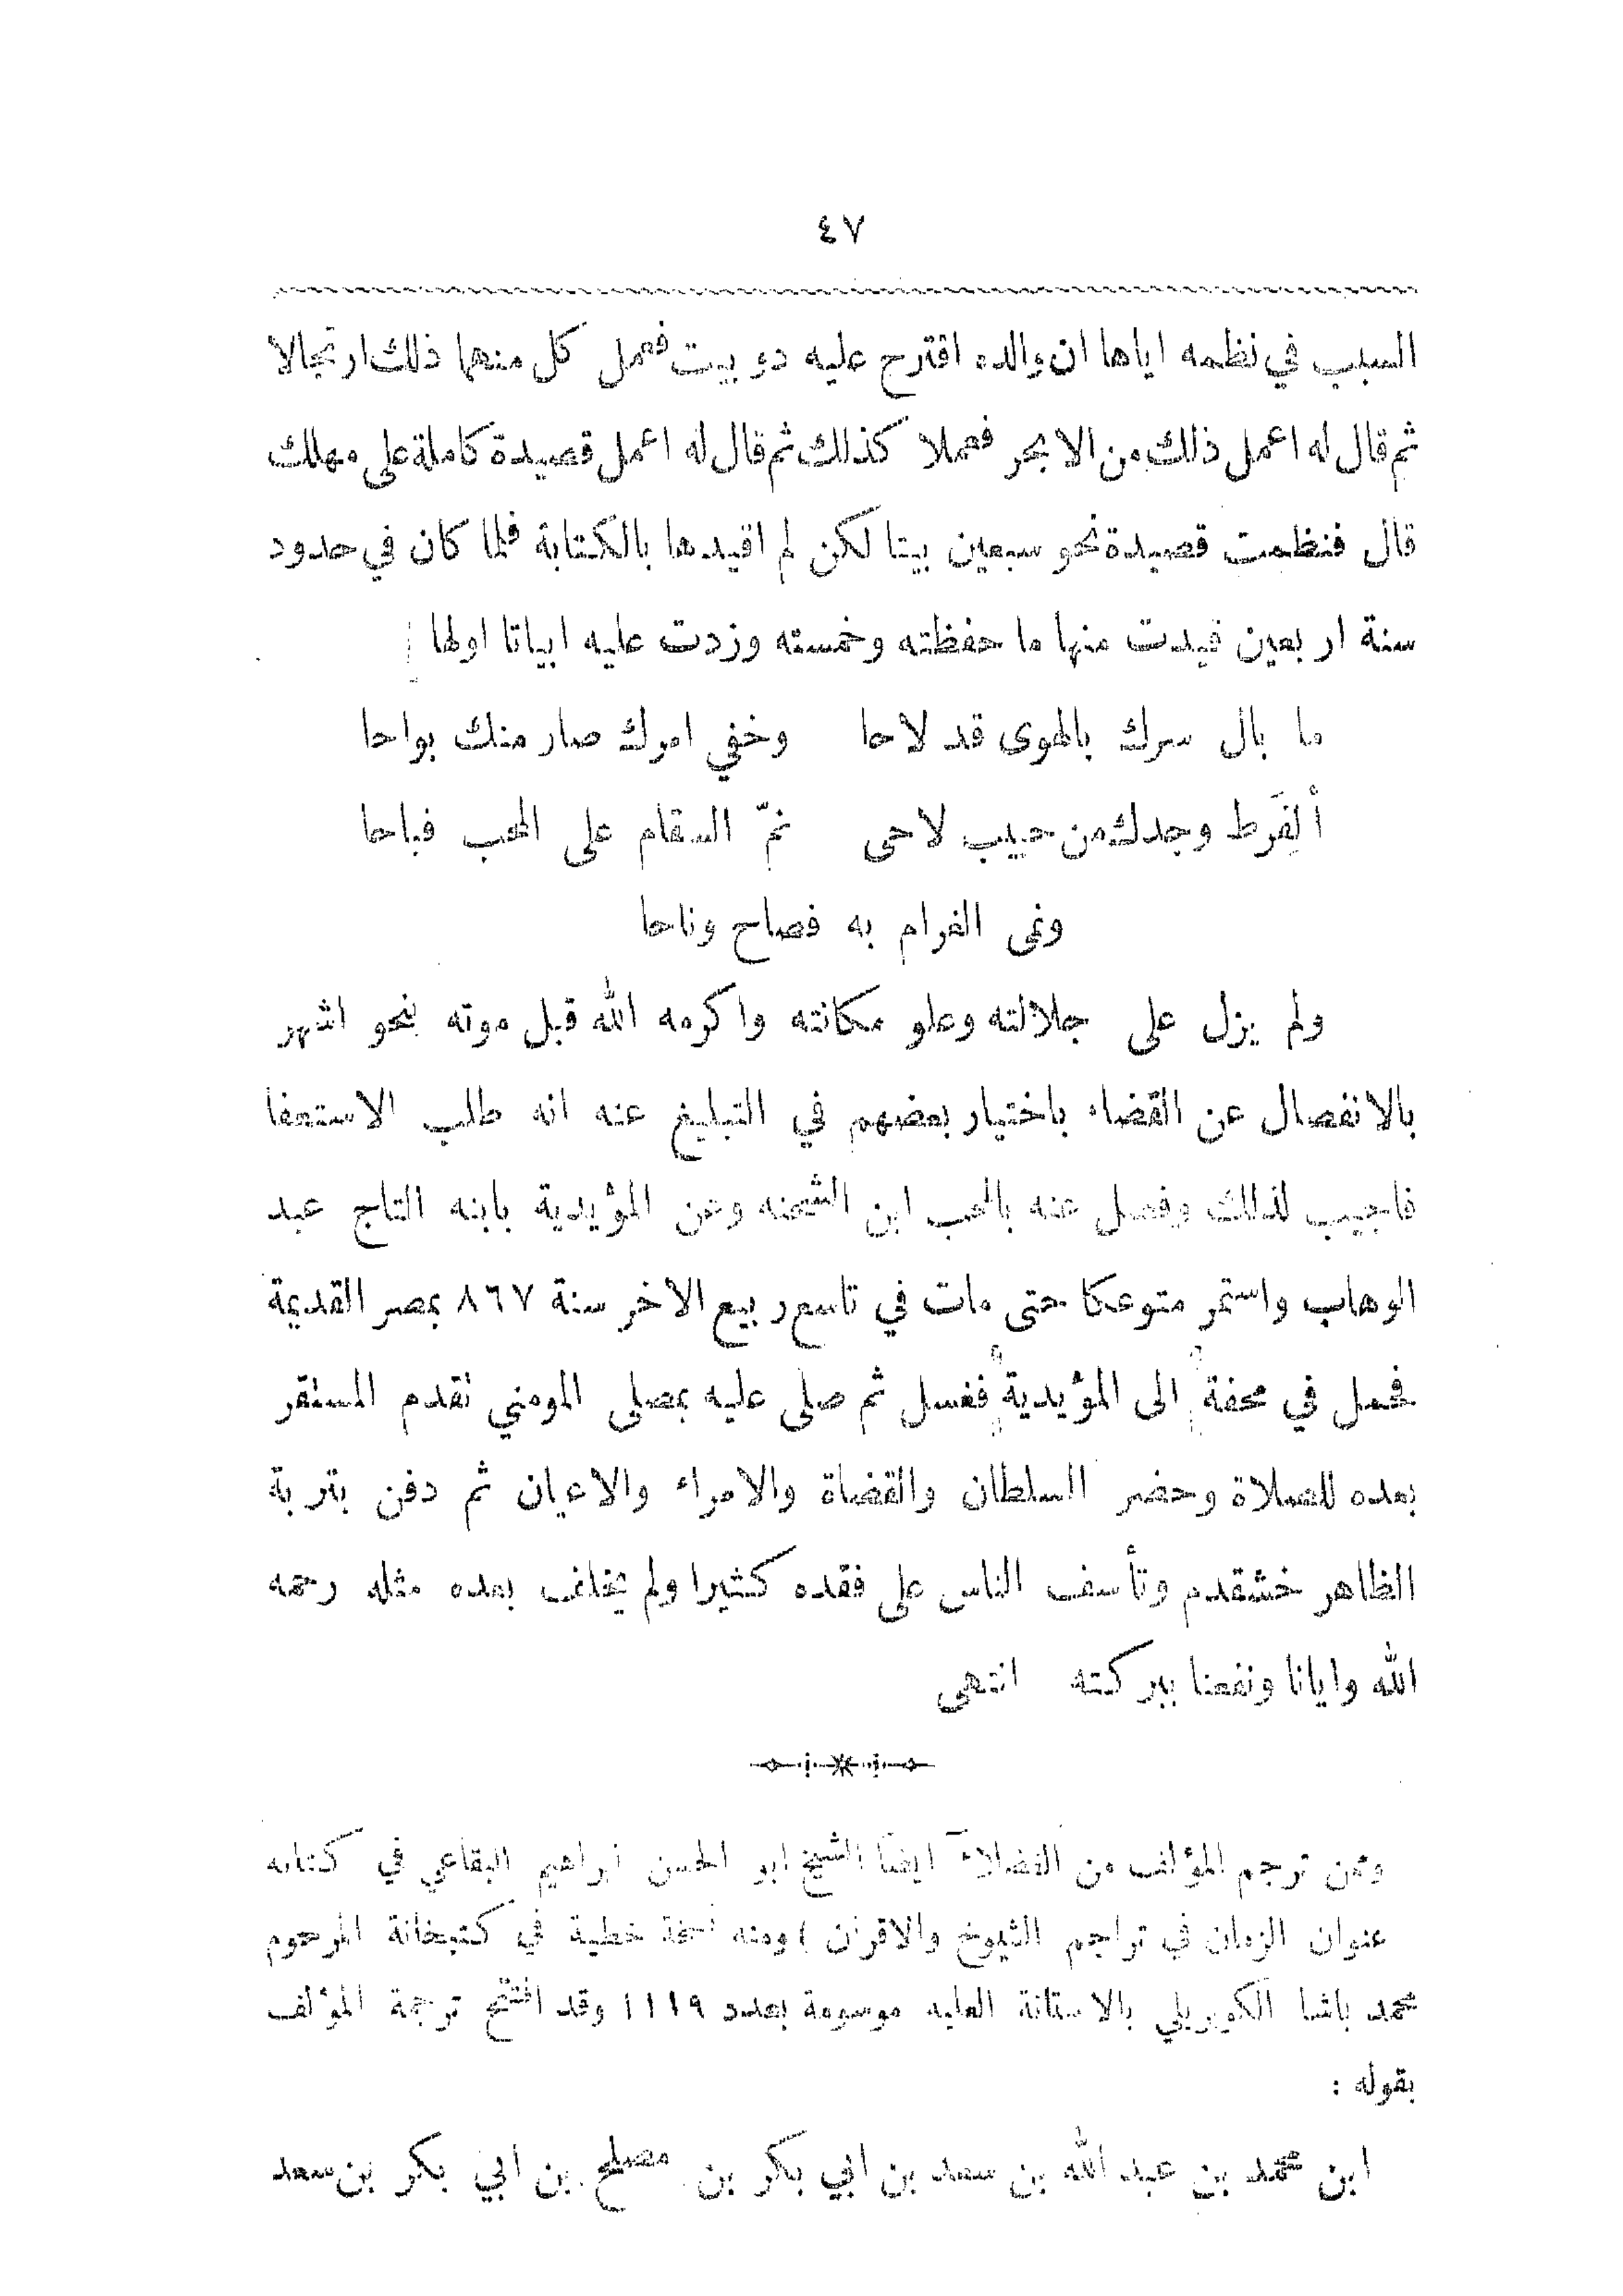 ٤٧
السبب في نظمه اياها ان والده اقترح عليه دو بيت فعمل كل منهما ذلك ارتجالا
ثم قال له اعمل ذلك من الابحر فعملا كذلك ثم قال له اعمل قصيدة كاملة على مهلك
قال فنظمت قصيدة نحو سبعين بيتا لكن لم اقيدها بالكتابة فلما كان في حدود
سنة اربعين قيدت منها ما حفظته وخمسته وزدت عليه ابياتا اولها
ما بال سرك بالهوى قد لاحا وخفي امرك صار منك بواحا
ألِفَرط وجدك من حبيب لاحى نمّ السقام على المحب فباحا
ونمى الغرام به فصاح وناحا
ولم يزل على جلالته وعلو مكانته واكرمه الله قبل موته بنحو اشهر
بالانفصال عن القضاء باختيار بعضهم في التبليغ عنه انه طلب الاستعفا
فاجيب لذلك وفصل عنه بالمحب ابن الشحنه وعن المؤيدية بابنه التاج عبد
الوهاب واستمر متوعكا حتى مات في تاسع ربيع الاخر سنة ٨٦٧ بمصر القديمة
فحمل في محفة الى المؤيدية فغسل ثم صلى عليه بمصلى المومني تقدم المستقر
بعده للصلاة وحضر السلطان والقضاة والامراء والاعيان ثم دفن بتربة
الظاهر خشقدم وتأسف الناس على فقده كثيرا ولم يخلف بعده مثله رحمه
الله وايانا ونفعنا ببركته انتهى
وممن ترجم المؤلف من الفضلاء ايضا الشيخ ابو الحسن ابراهيم البقاعي في كتابه
عنوان الزمان في تراجم الشيوخ والاقران) ومنه نسخة خطية في كتبخانة المرحوم
محمد باشا الكوبريلي بالاستانة العليه موسومة بعدد ١١١٩ وقد افتتح ترجمة المؤلف
بقوله :
ابن محمد بن عبد الله بن سعد بن ابي بكر بن مصلح بن ابي بكر بن سعد